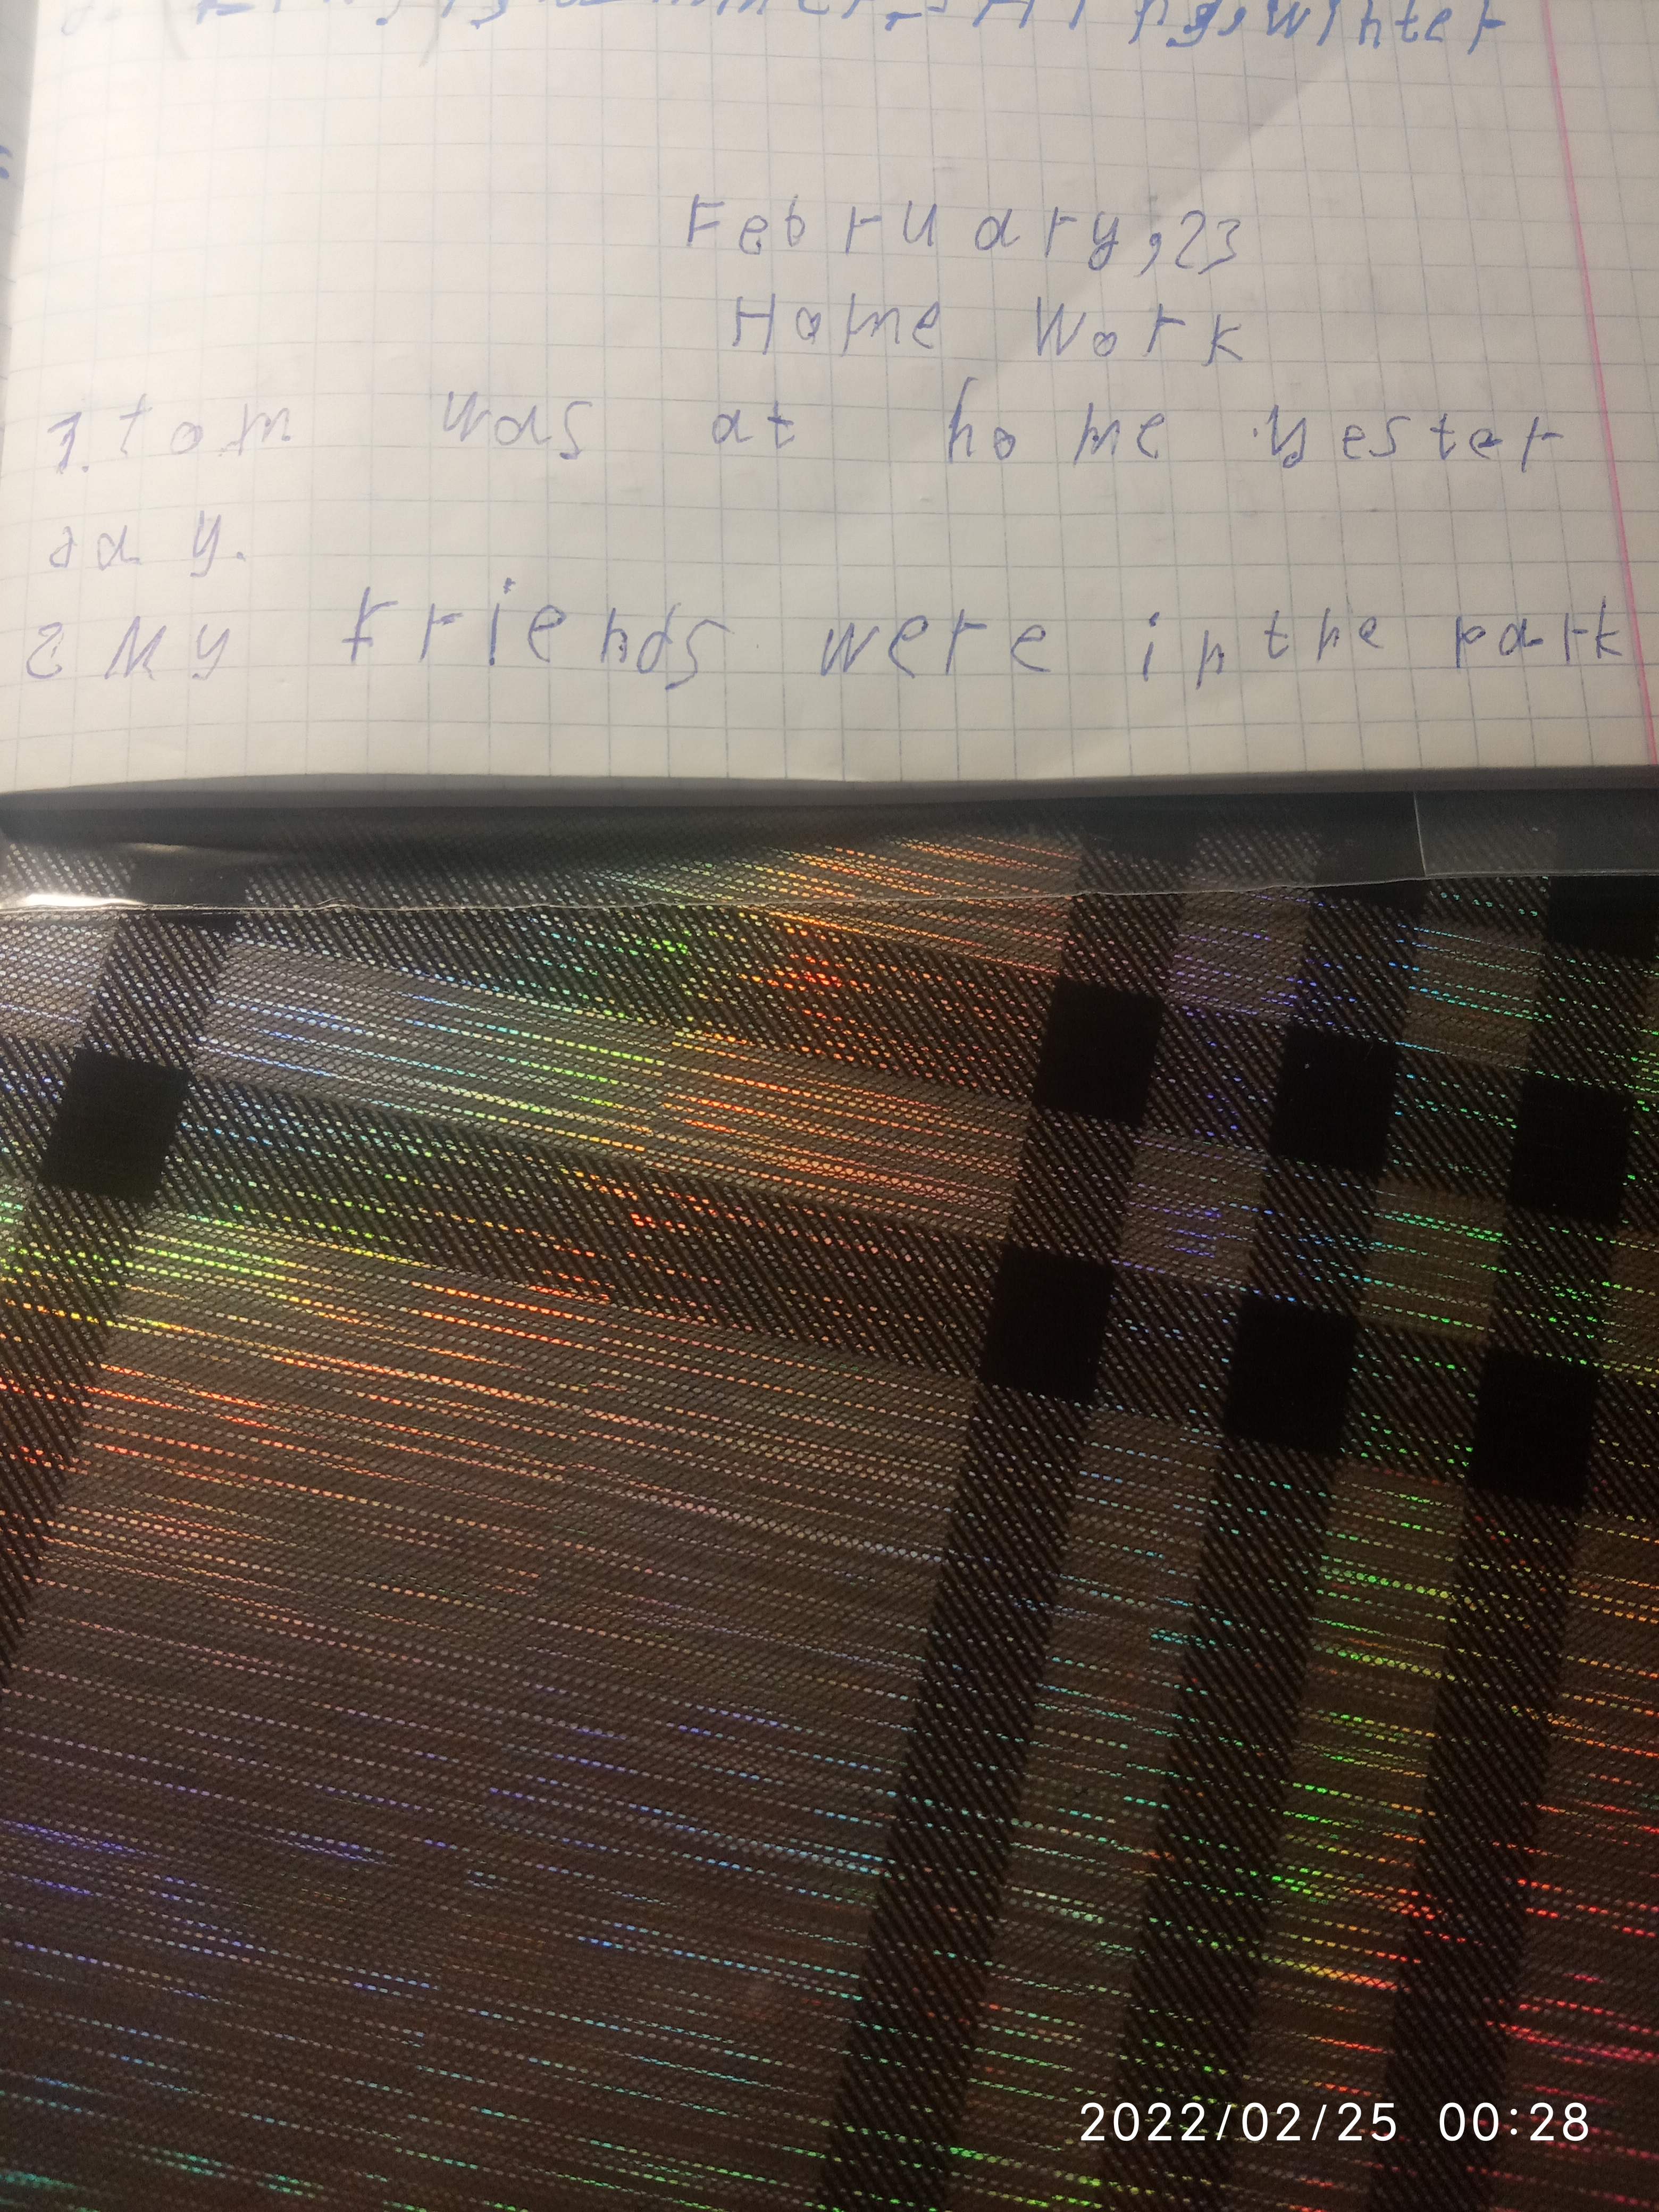 winter
February, 23
Home Work
1. tom was at home yester
day.
2 My friends were in the park
2022/02/25 00:28